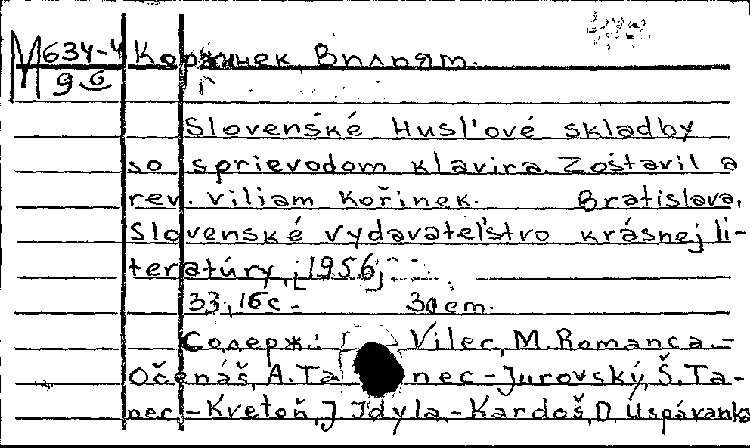 М 634-4 Коржинек, Вилиям.
96
Slovenské Husl'ové skladby
so sprievodom klavira. Zostavil a
rev. Viliam Kořinek. Bratislava,
Slovenské vydavatel'stvo krásnej li-
teratúry, [1956]
33, 16 c. 30 cm.
Содерж.: Vilec, M. Romanca. -
Očenáš, A. Ta nec - Jurovský, Š. Ta-
nec. - Kvetoň, J. Idyla. - Kardoš, D. Uspávanka